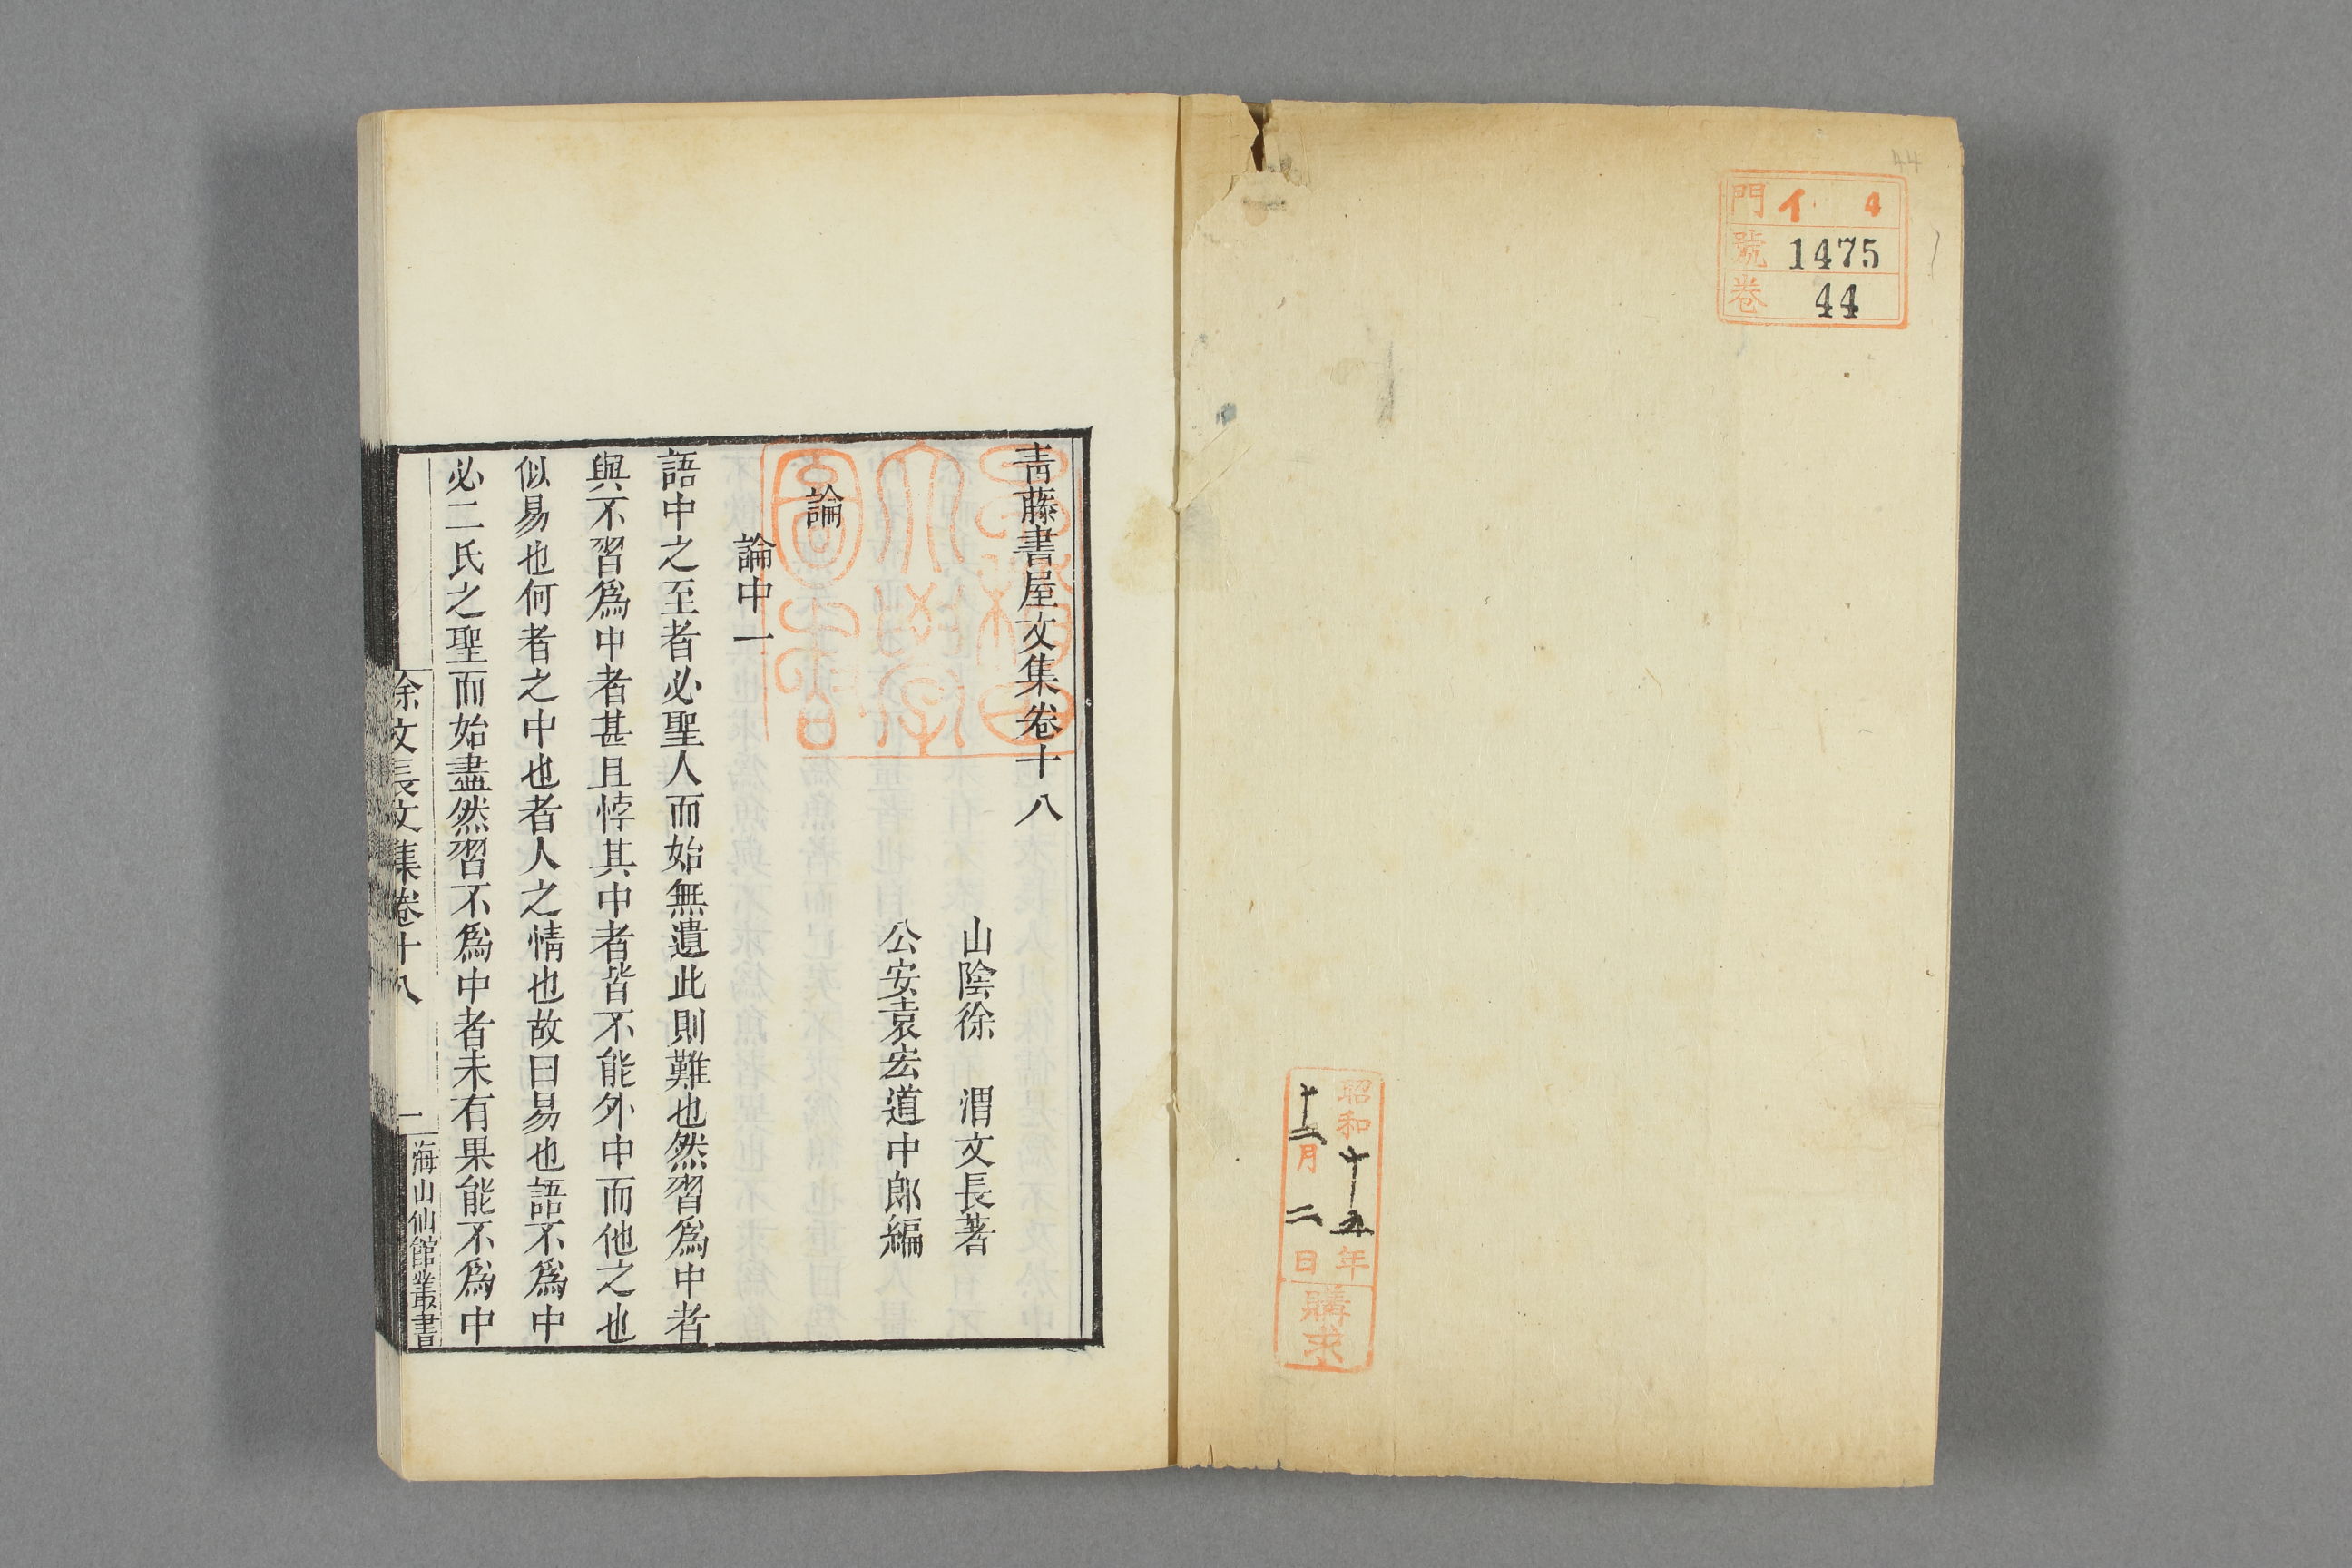 44
門 イ 4
號 1475
卷 44
昭和十五年
十二月二日
購求
靑藤書屋文集卷十八
山陰徐 渭文長著
公安袁宏道中郎編
論
論中一
語中之至者必聖人而始無遺此則難也然習爲中者
與不習爲中者甚且悖其中者皆不能外中而他之也
似易也何者之中也者人之情也故曰易也語不爲中
必二氏之聖而始盡然習不爲中者未有果能不爲中
徐文長文集卷十八
一
海山仙館叢書